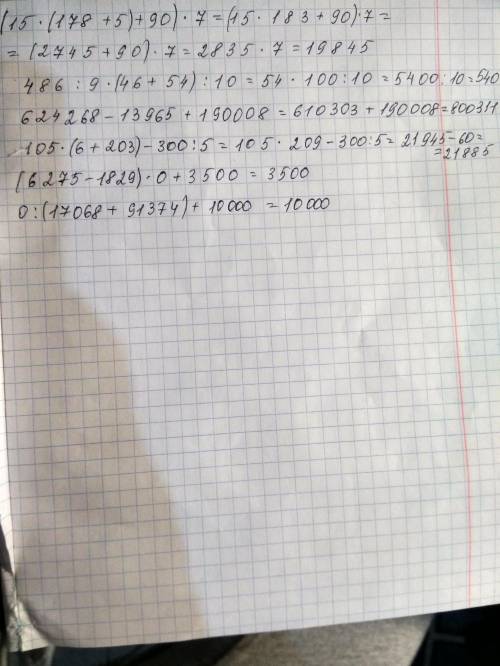 (15 · (178 + 5) + 90) · 7 = (15 · 183 + 90) · 7 =
= (2745 + 90) · 7 = 2835 · 7 = 19845
486 : 9 · (46 + 54) : 10 = 54 · 100 : 10 = 5400 : 10 = 540
624268 - 13965 + 190008 = 610303 + 190008 = 800311
105 · (6 + 203) - 300 : 5 = 105 · 209 - 300 : 5 = 21945 - 60 =
= 21885
(6275 - 1829) · 0 + 3500 = 3500
0 : (17068 + 91374) + 10000 = 10000